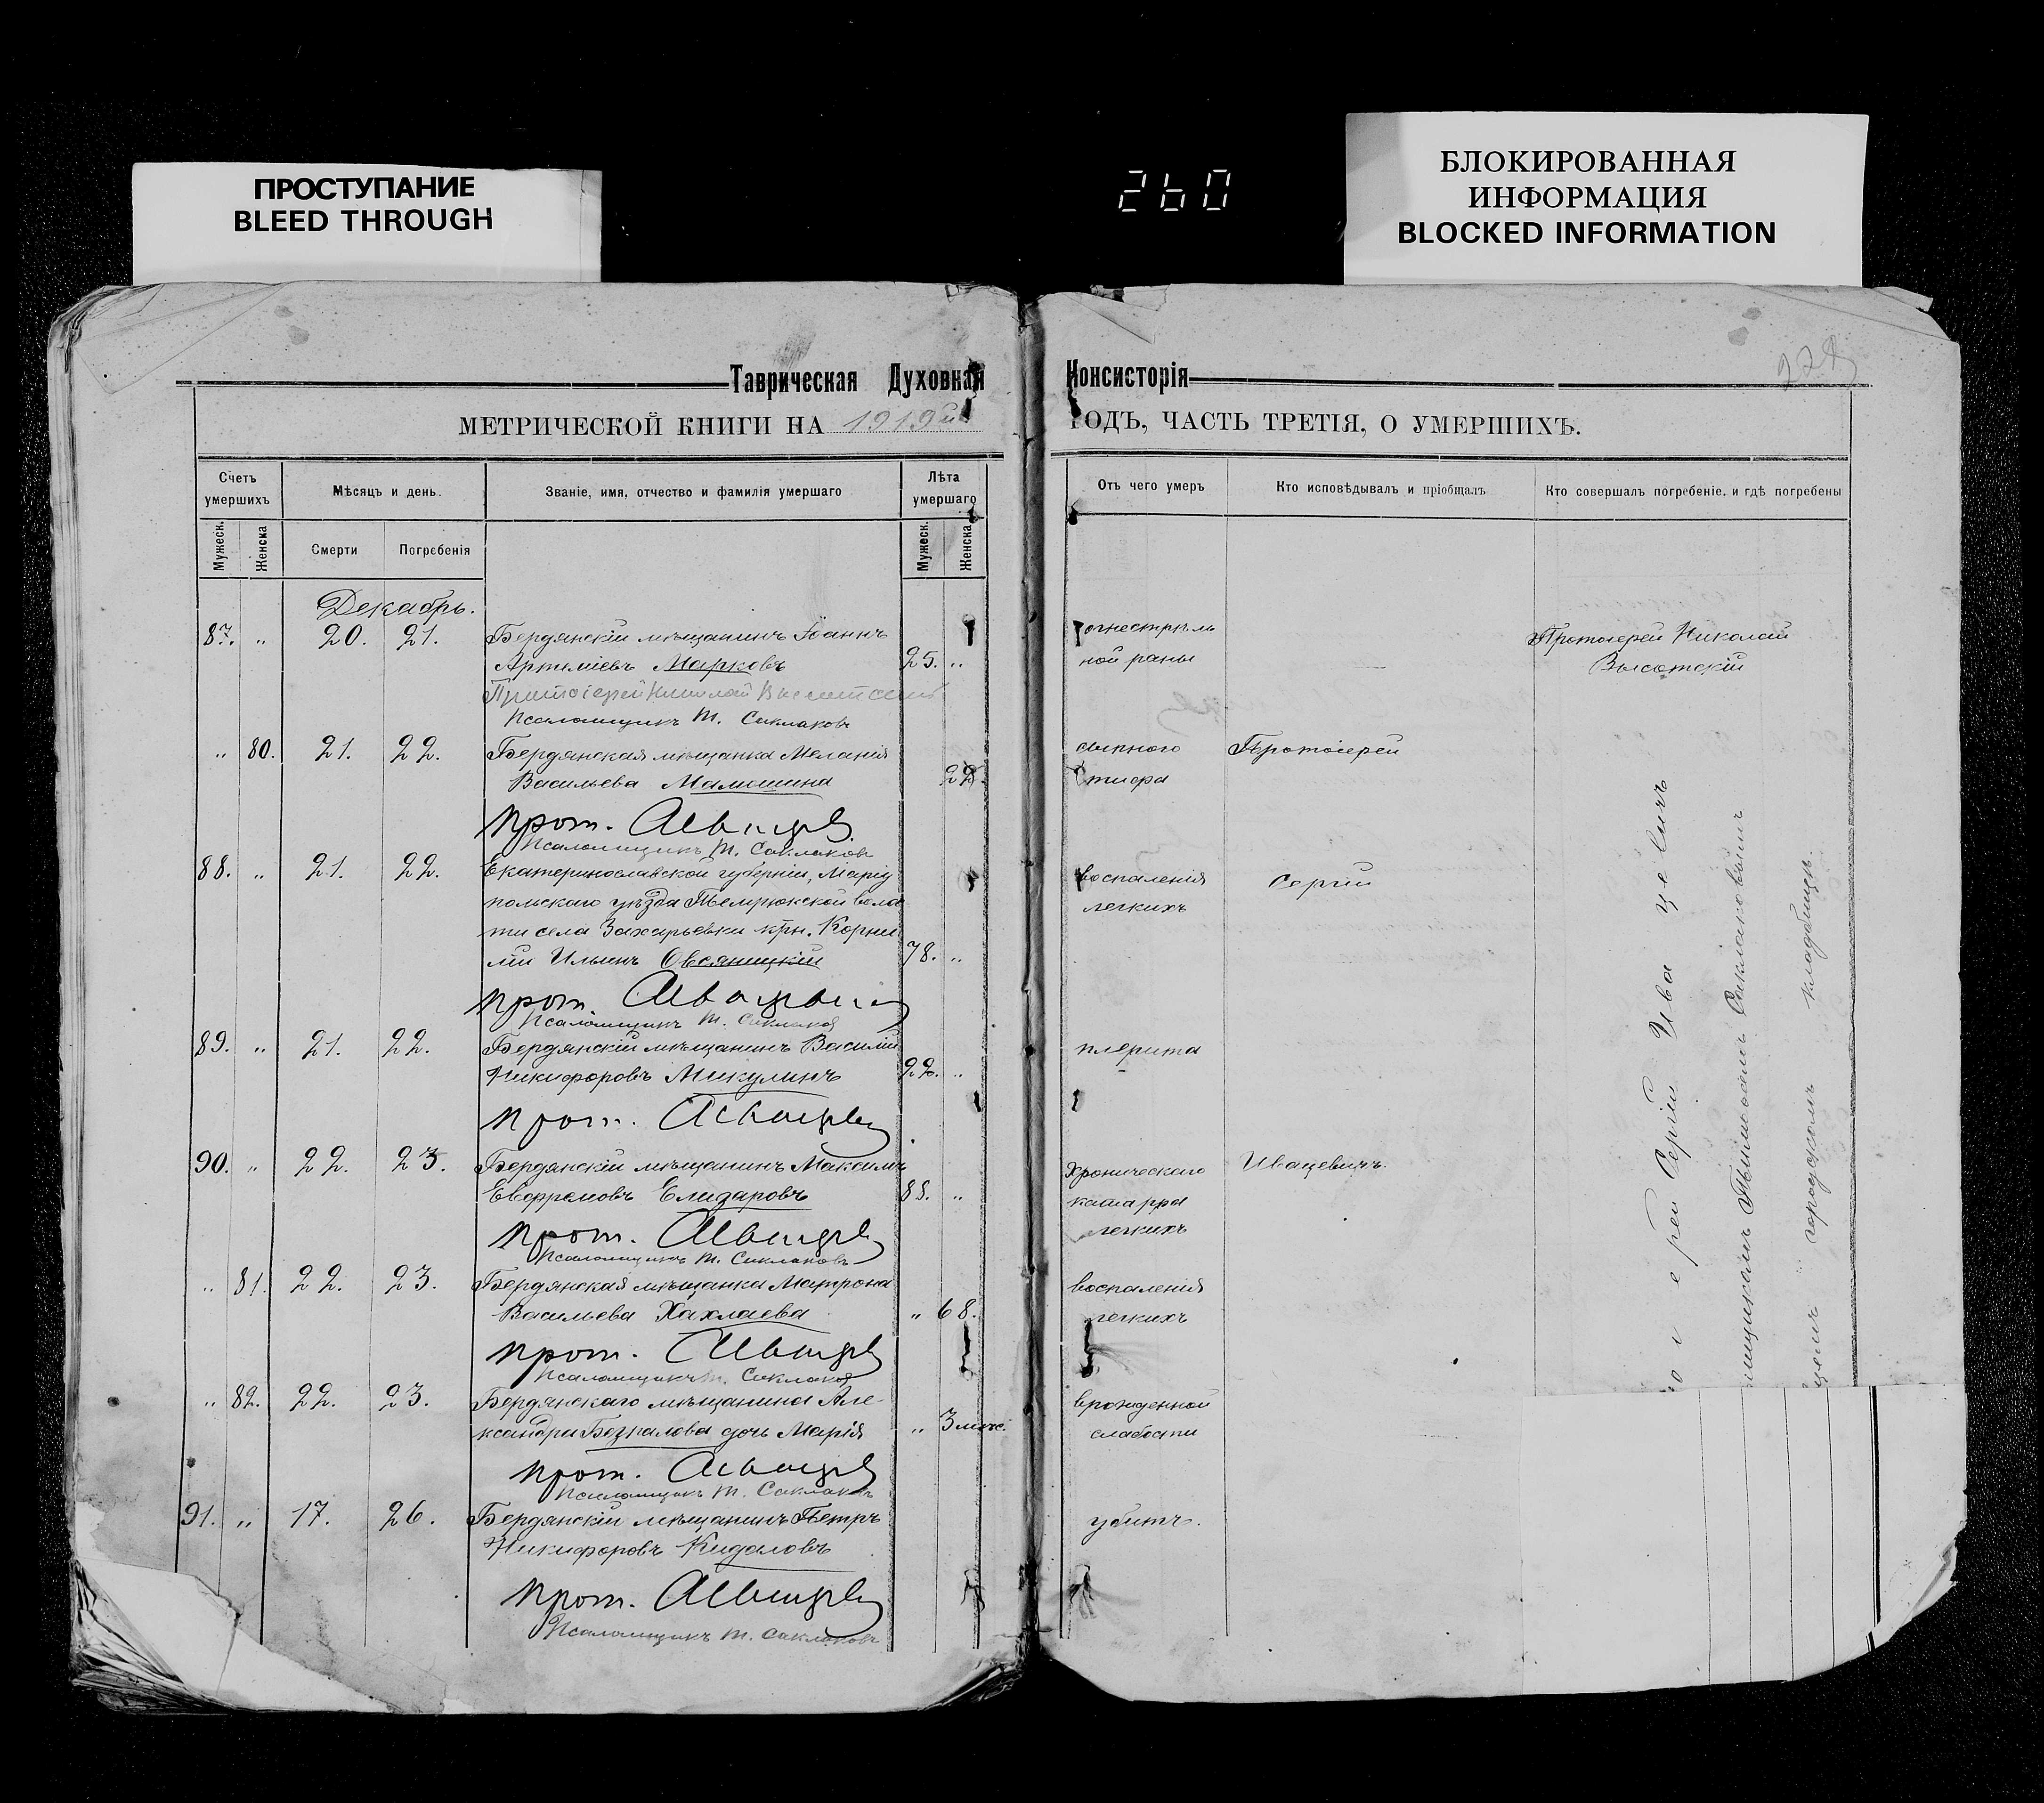 ПРОСТУПАНИЕ
BLEED THROUGH
260
БЛОКИРОВАННАЯ
ИНФОРМАЦИЯ
BLOCKED INFORMATION
Таврическая Духовная Консисторія
МЕТРИЧЕСКОЙ КНИГИ НА 1919й ГОДЪ, ЧАСТЬ ТРЕТІЯ, О УМЕРШИХЪ.
Счетъ умершихъ
Мѣсяцъ и день.
Званіе, имя, отчество и фамилія умершаго
Лѣта умершаго
Отъ чего умеръ
Кто исповѣдывалъ и пріобщалъ
Кто совершалъ погребеніе, и гдѣ погребены
Мужеск. Женска Смерти Погребенія Мужеск. Женска
Декабрь.
87. „ 20. 21. Бердянскій мѣщанинъ Іоаннъ огнестрѣль Протоіерей Николай
Артеміевъ Марковъ 25. „ ной раны — Высотскій
Протоіерей Николай Высотскій
Псаломщикъ Т. Саклаковъ
„ 80. 21. 22. Бердянская мѣщанка Меланія сыпного Протоіерей
Васильева Малышина тифа
прот.
Псаломщикъ Т. Саклаковъ
88. „ 21. 22. Екатеринославской губерніи, Маріу воспаленія Сергій
польскаго уѣзда Темрюкской волос легкихъ
ти села Захарьевки крн. Корни
лій Ильинъ Овсяницкій 78. „
прот.
Псаломщикъ Т. Саклаков
89. „ 21. 22. Бердянскій мѣщанинъ Василій плерита
Никифоровъ Микулинъ 22. „
прот.
90. „ 22. 23. Бердянскій мѣщанинъ Максимъ хроническаго Ивацевичъ.
Евфремовъ Елидаровъ 88. „ катарра
легкихъ
прот.
Псаломщикъ Т. Саклаковъ
„ 81. 22. 23. Бердянская мѣщанка Матрона воспаленія
Васильева Хахлаева „ 68. легкихъ
прот.
Псаломщикъ Т. Саклаков
„ 82. 22. 23. Бердянскаго мѣщанина Але врожденной
ксандра Безпалова дочь Марія „ 3 мѣс. слабости
прот.
Псаломщикъ Т. Саклаковъ
91. „ 17. 26. Бердянскій мѣщанинъ Петръ убитъ.
Никифоровъ Кидаловъ
прот.
Псаломщикъ Т. Саклаковъ
ерей Сергій Ива це вичъ
мщикомъ Тимофеемъ Саклаковымъ
городскомъ кладбищѣ.